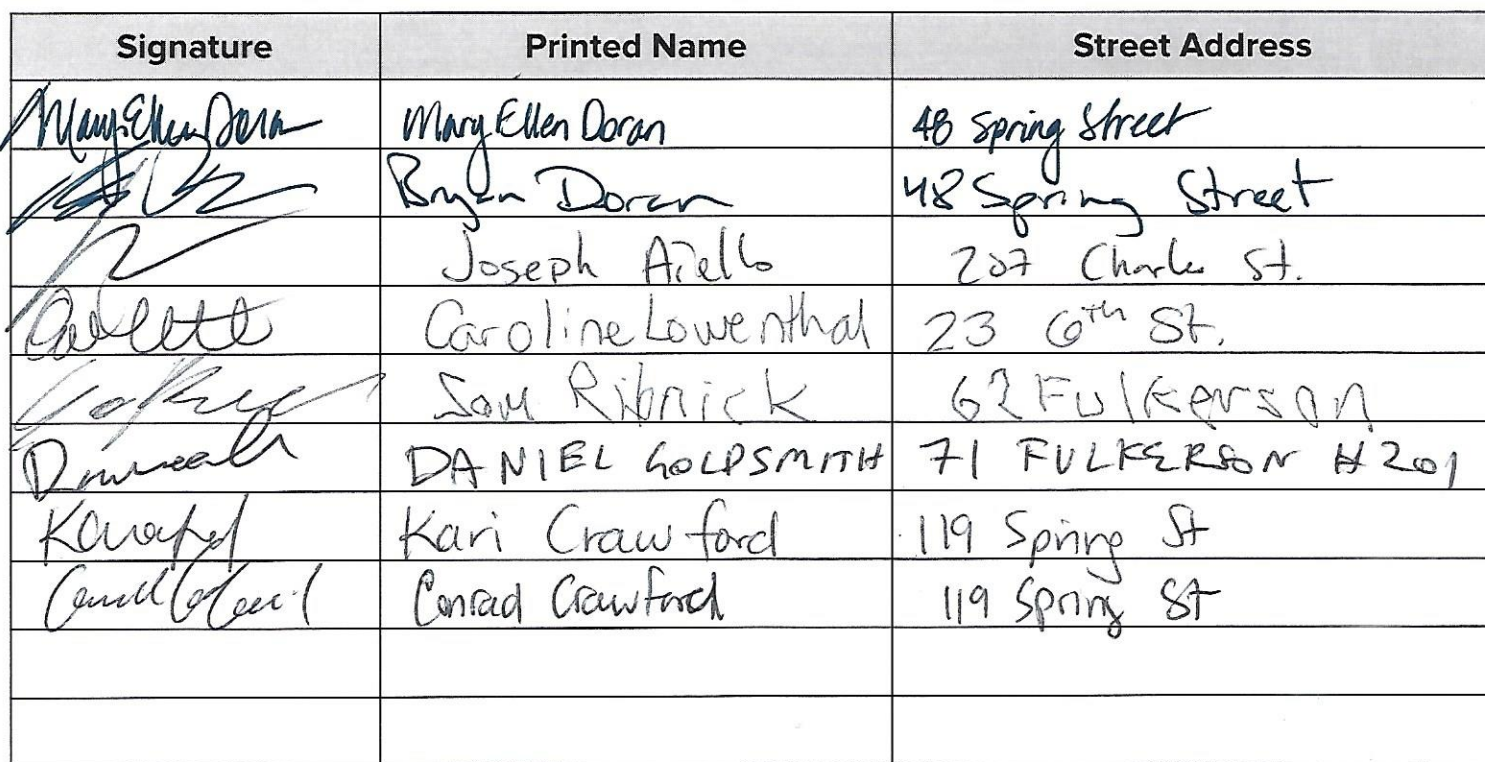 Signature Printed Name Street Address
MaryEllen Doran Mary Ellen Doran 48 Spring Street
Bryan Doran 48 Spring Street
Joseph Aiello 207 Charles St.
Caroline Lowenthal 23 6th St.
Sam Ribnick 62 Fulkerson
DANIEL GOLDSMITH 71 FULKERSON #201
KCrawford Kari Crawford 119 Spring St
Conrad Crawford 119 Spring St